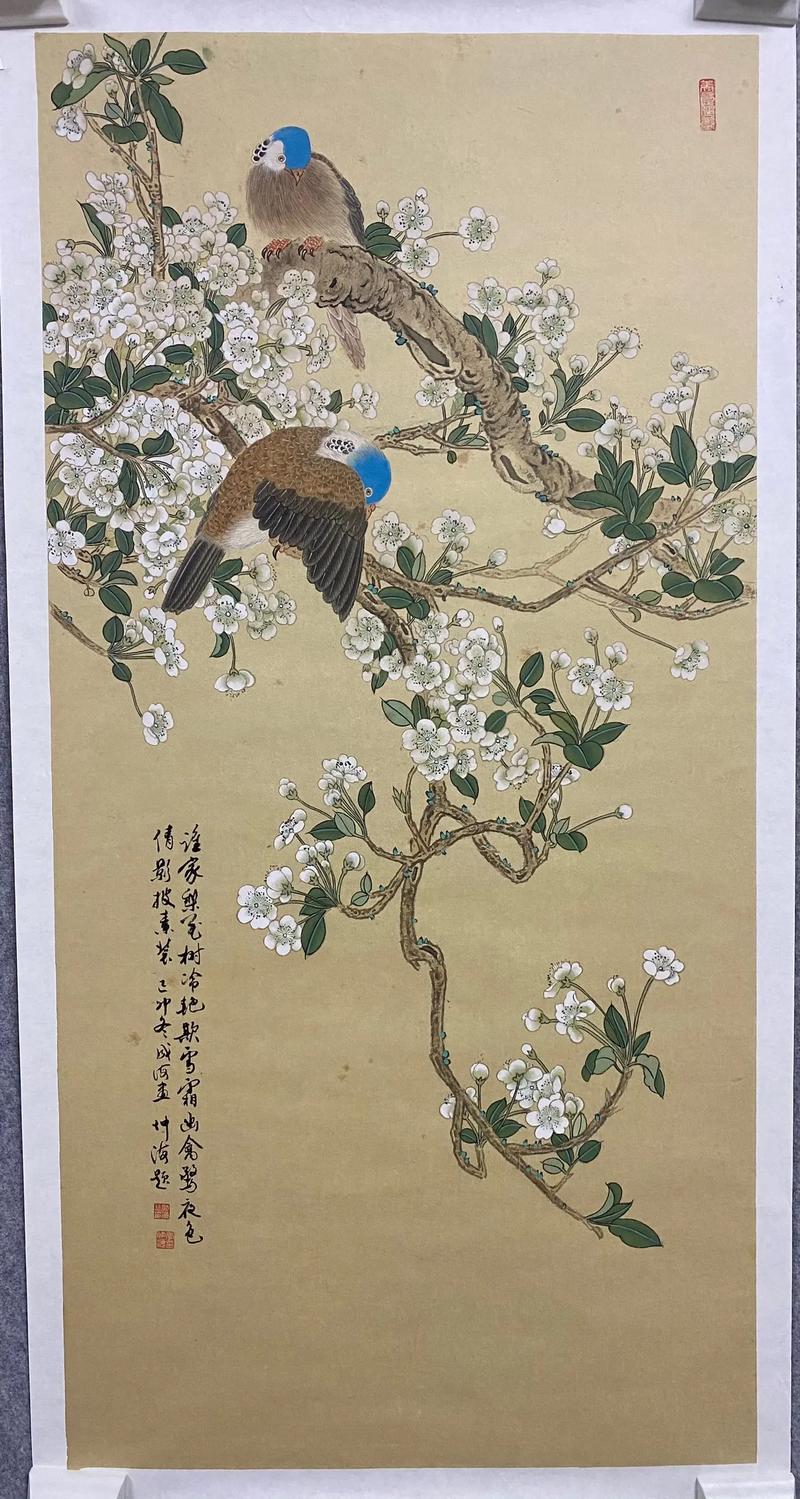 谁家梨花树冷艳欺雪霜幽禽惊夜色
倩影披素装 己卯冬成海画 坤海题